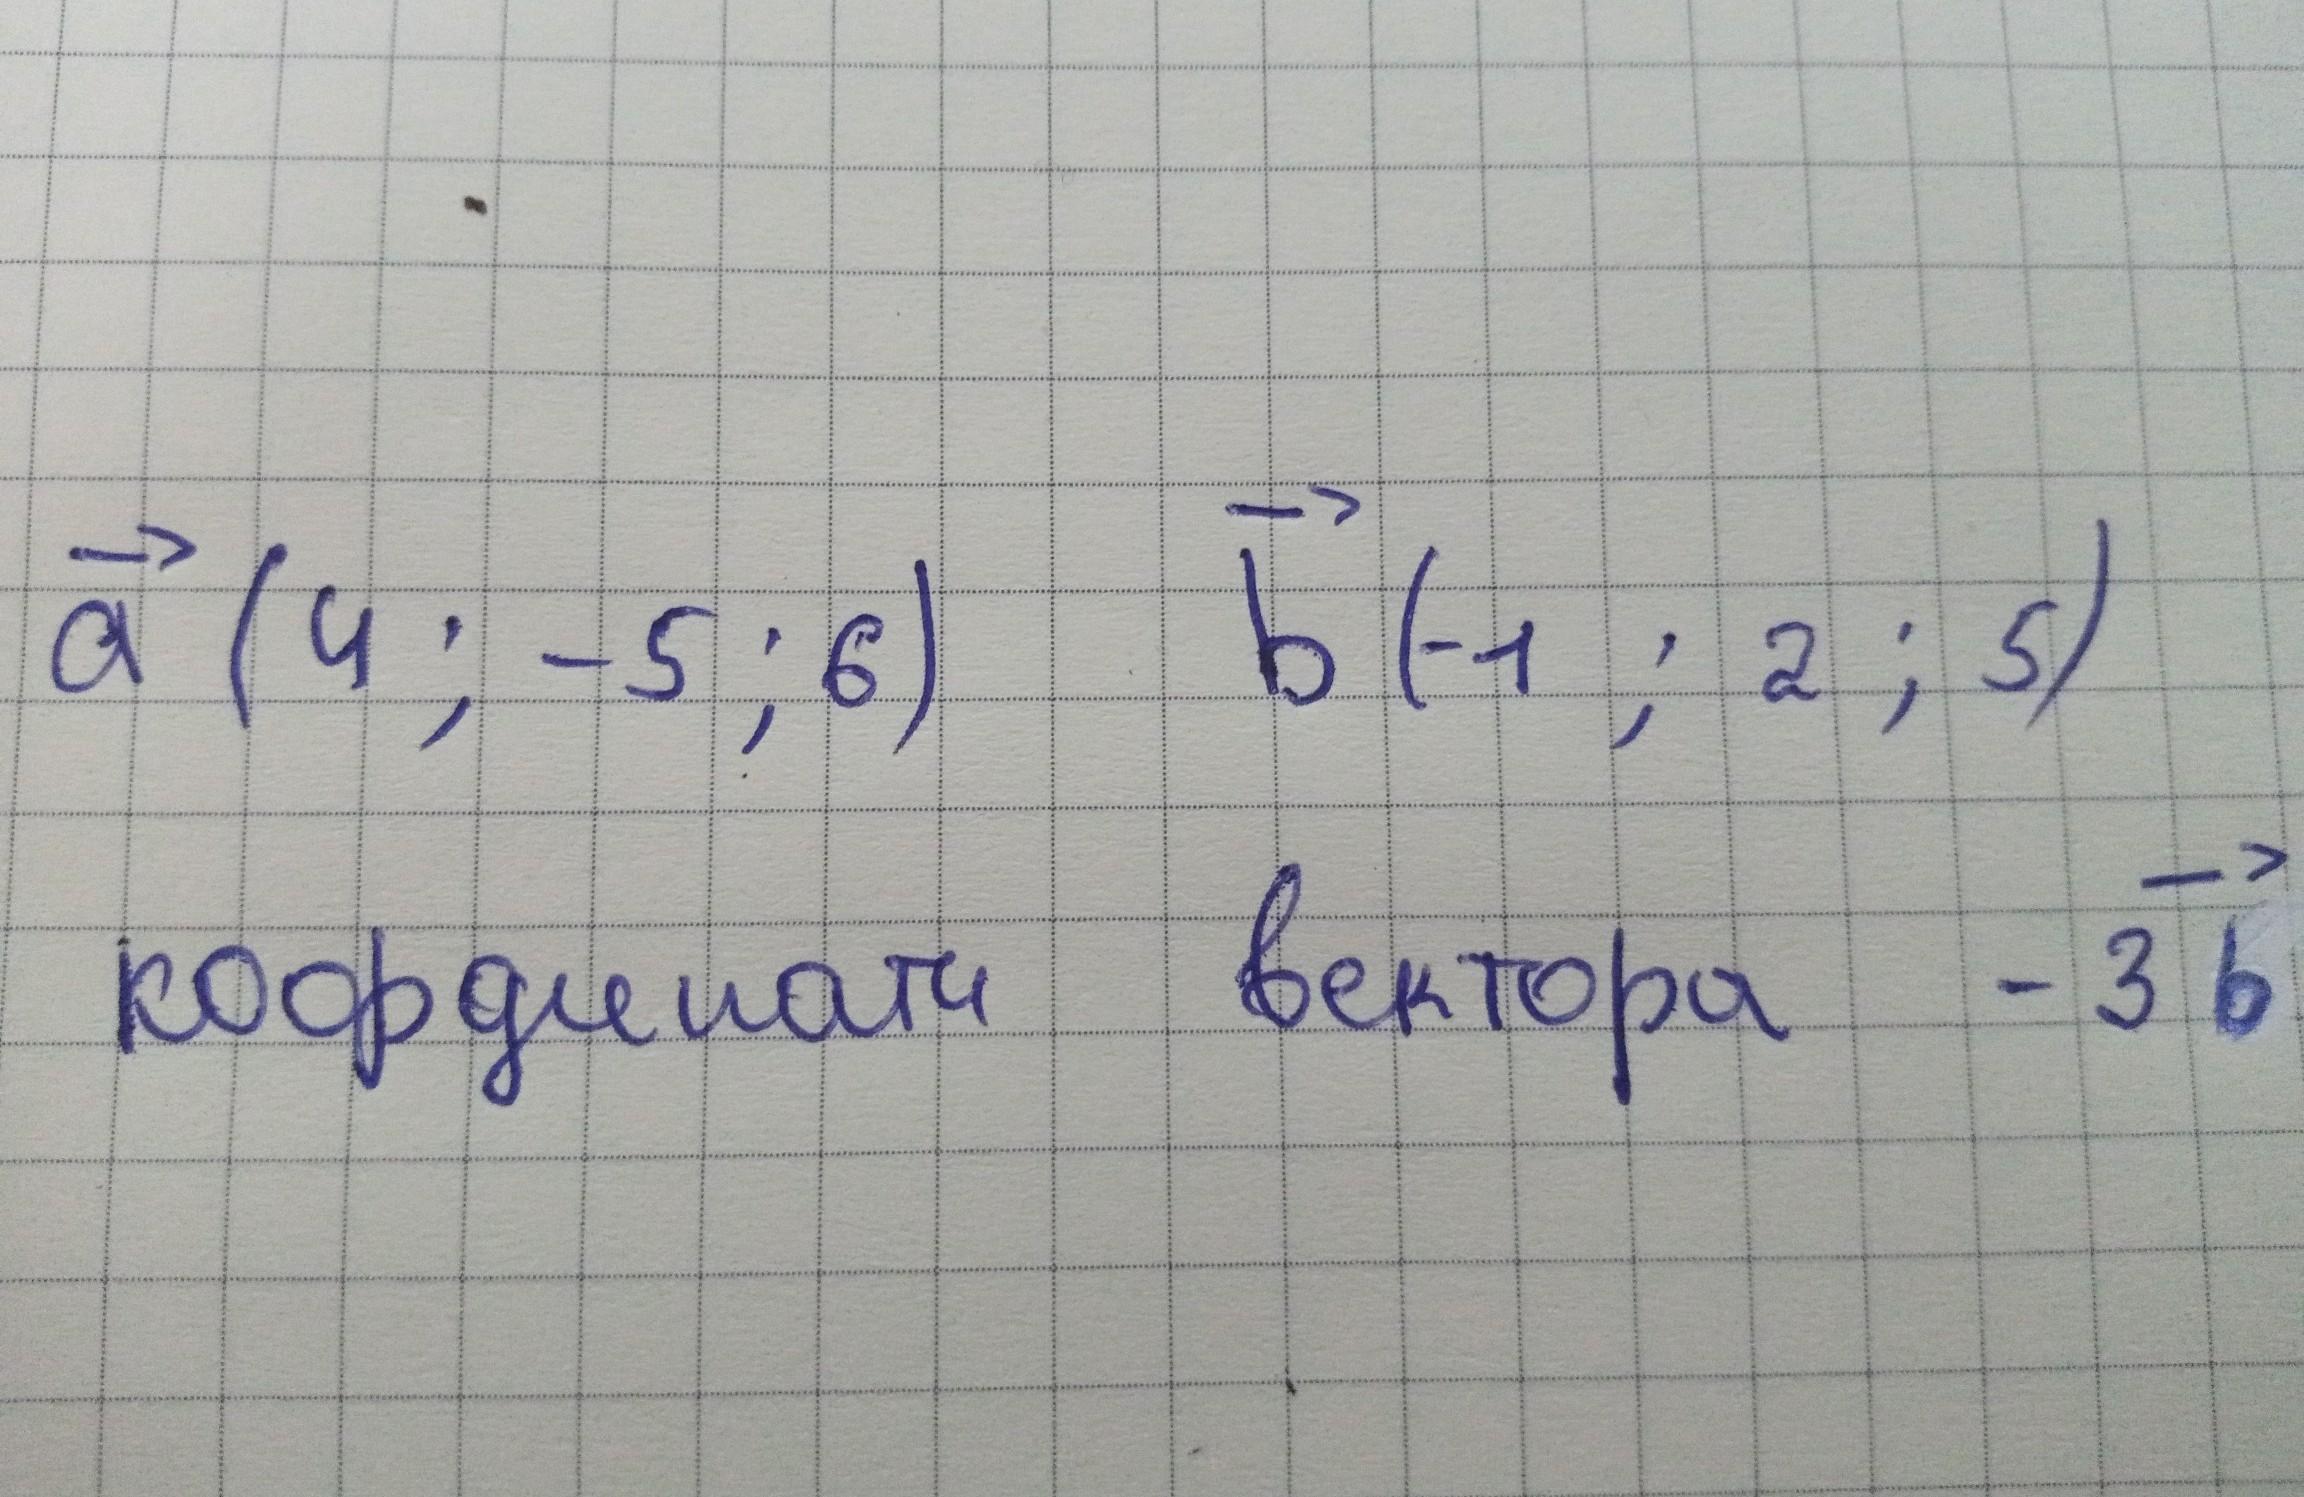 a⃗ (4 ; -5 ; 6) b⃗ (-1 ; 2 ; 5)
координати вектора -3b⃗